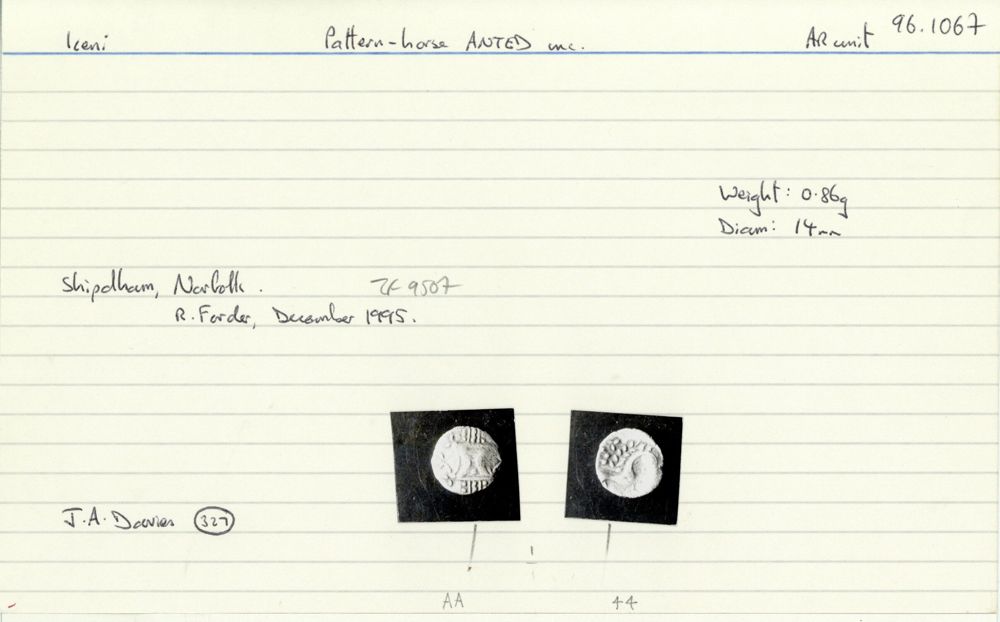 Iceni Pattern-horse ANTED inc. AR unit 96.1067
Weight: 0.86g
Diam: 14mm
Shipdham, Norfolk. TF 9507
R. Forder, December 1995.
J.A. Davies 327
AA 44